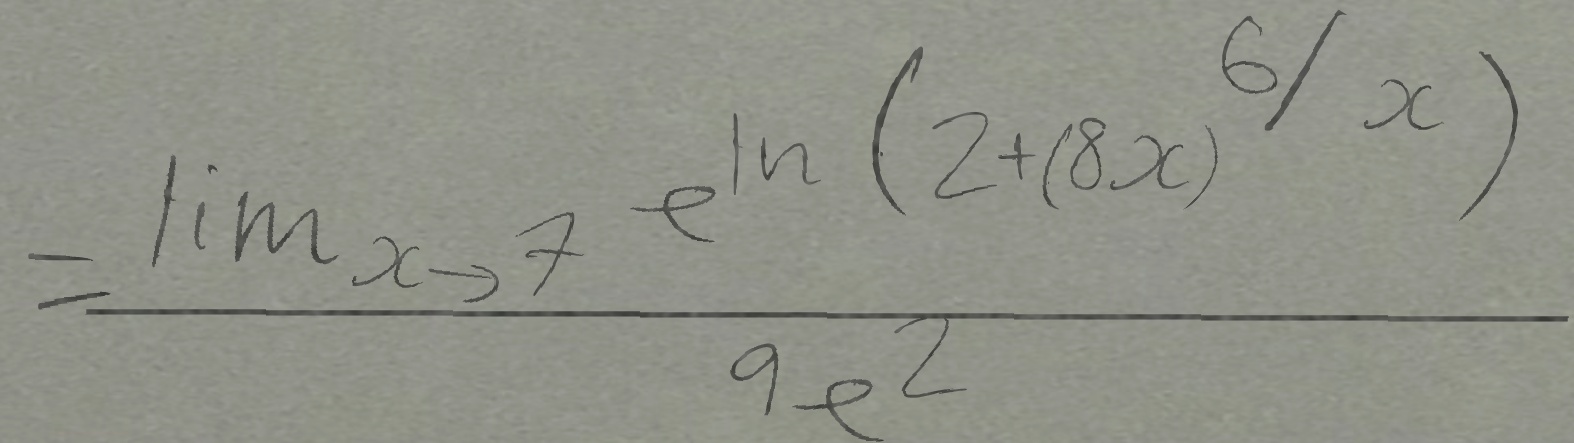 = \frac{\lim_{x \to 7} e^{\ln \left( 2 + (8x)^{6/x} \right)}}{9e^2}